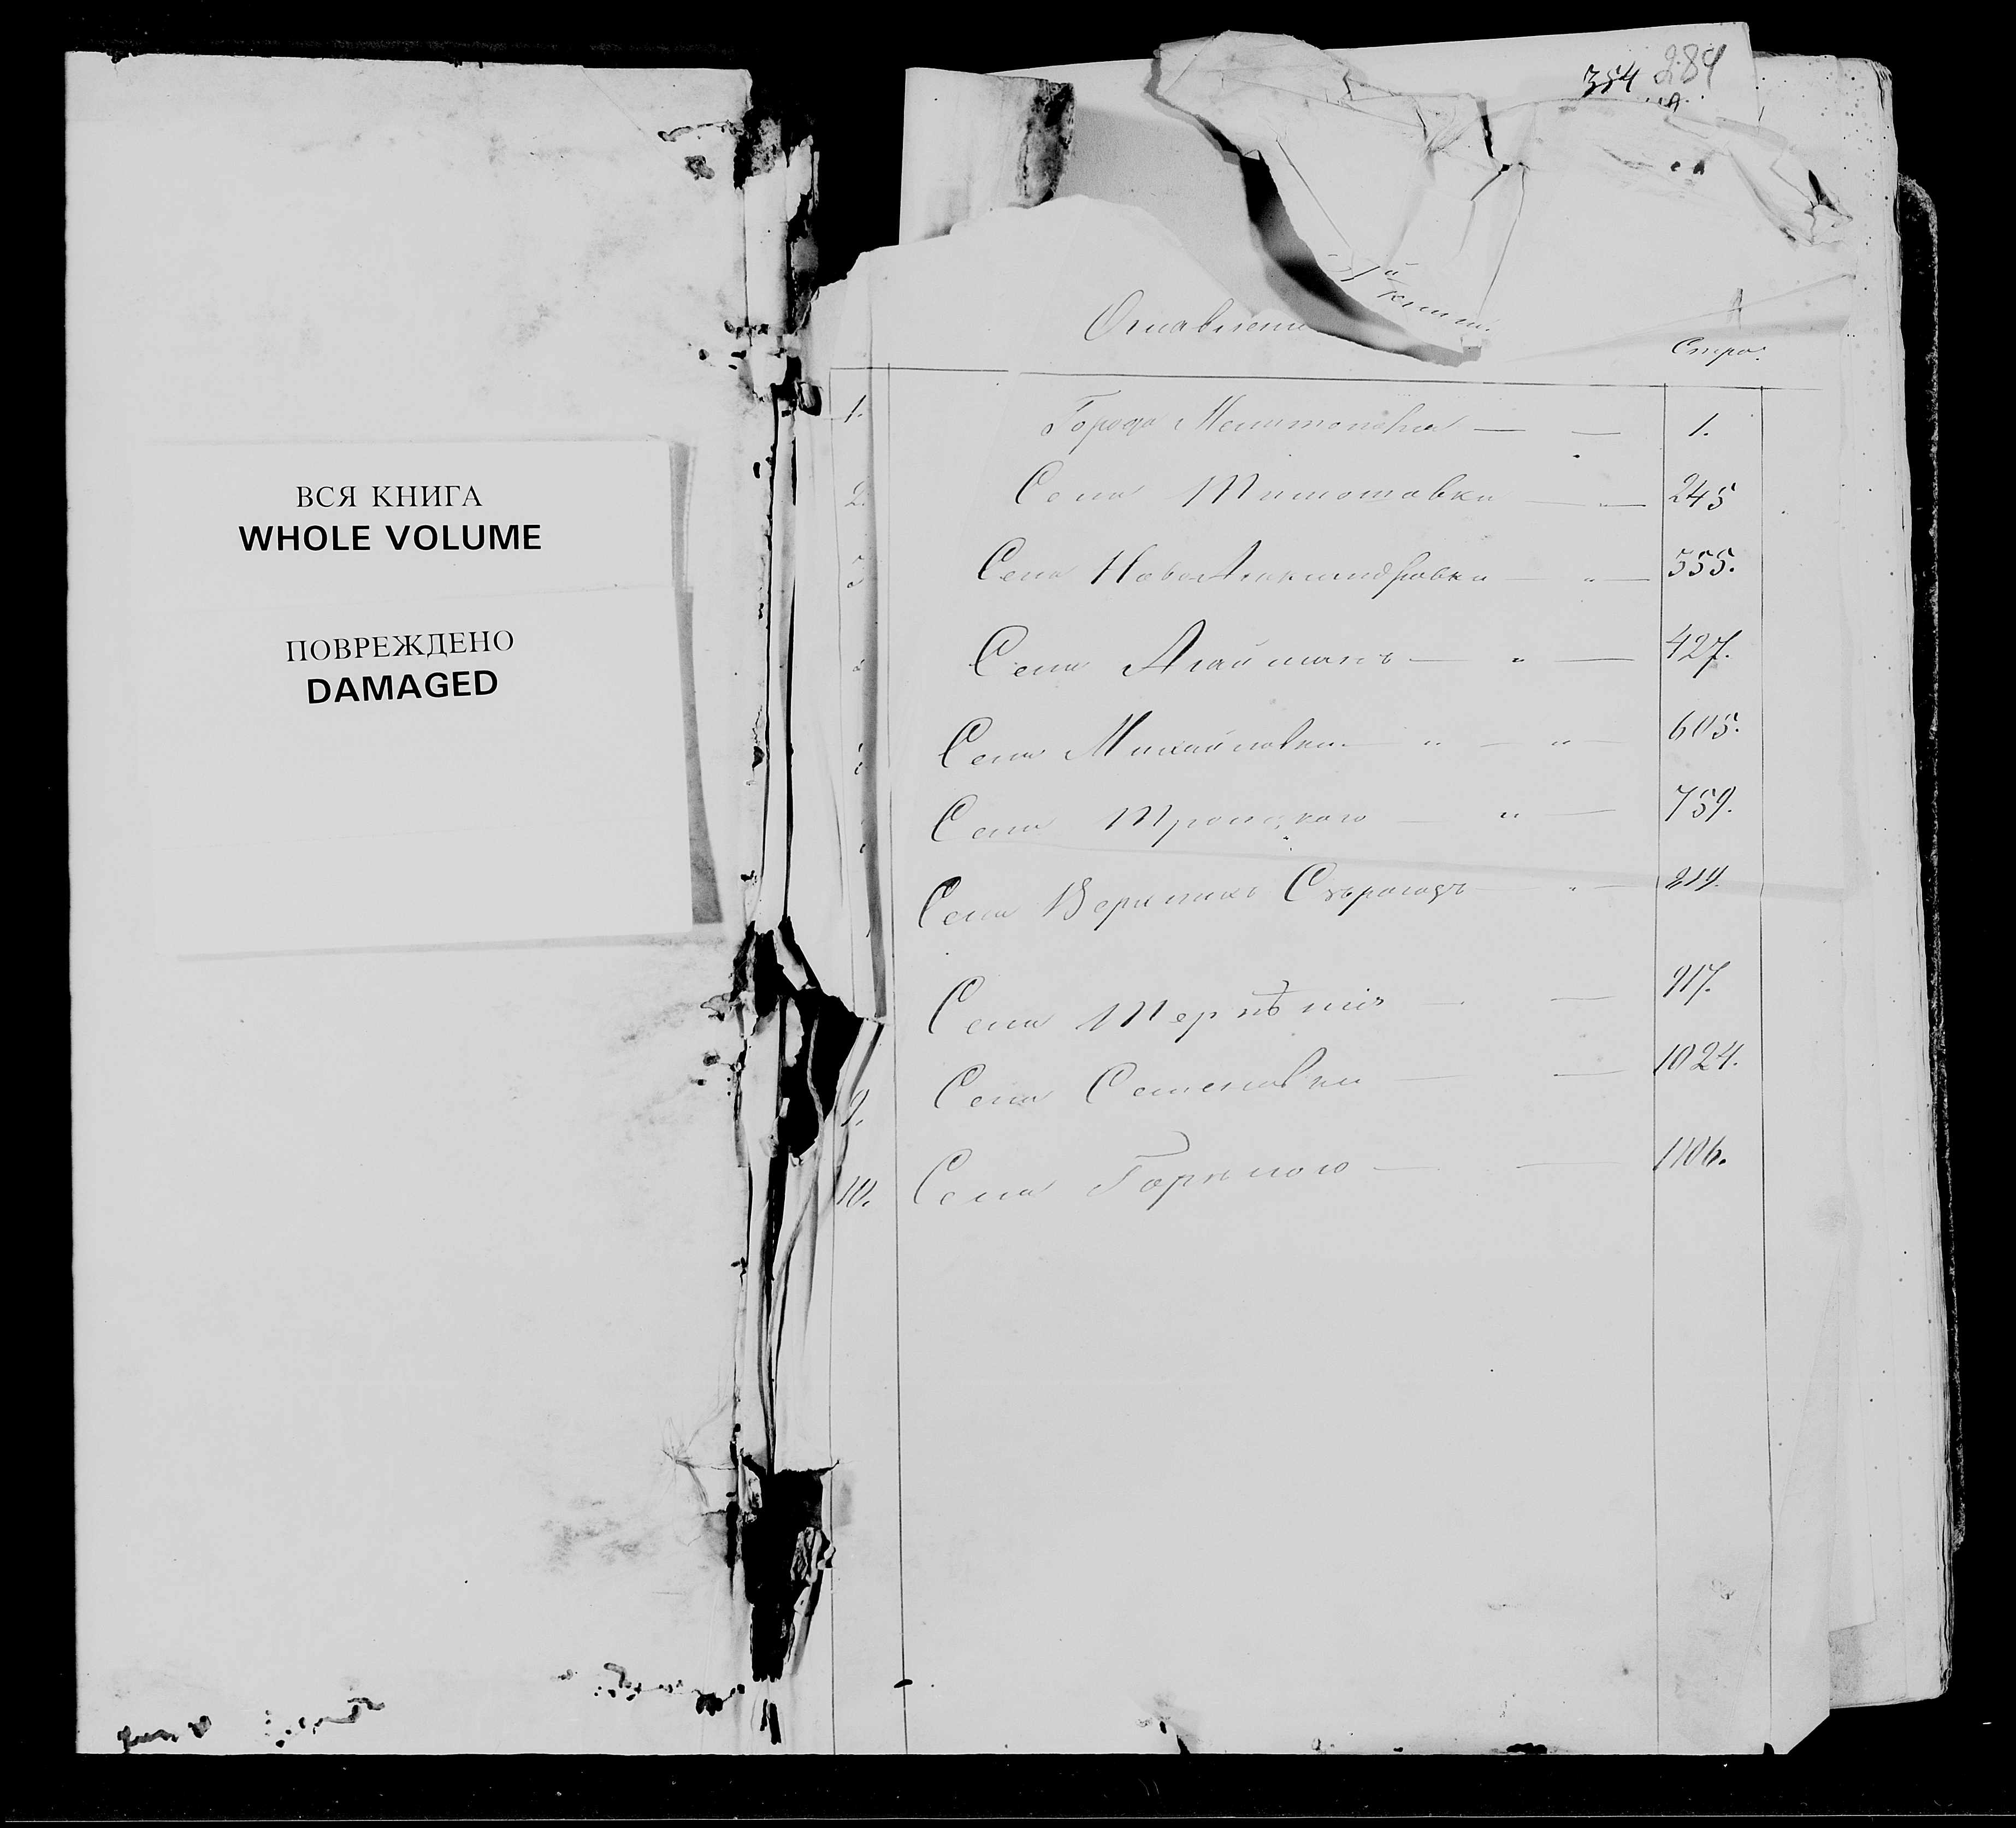 ВСЯ КНИГА
WHOLE VOLUME
ПОВРЕЖДЕНО
DAMAGED
384 284
1й книги
Оглавлені
Стра.
1. Города Мелитополя — — 1.
2. Села Тимошовки — „ — 245
3 Села НовоАлександровки — „ — 355.
Села Агайманъ — „ — 427.
Села Михайловки — „ — „ — 605.
Села Троицкаго — „ — 759.
Села Верхнихъ Сѣрогозъ — „ — 814.
Села Терпѣнія — — 917.
9. Села Семеновки — — 1024.
10. Села Горькаго — — 1106.